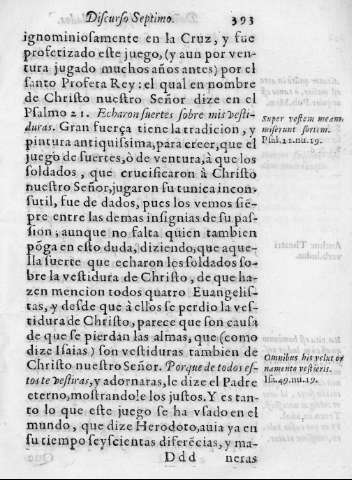 Discurso Septimo. 393
ignominiosamente en la Cruz, y fue
profetizado este juego, (y aun por ven-
tura jugado muchos años antes) por el
santo Profeta Rey: el qual en nombre
de Christo nuestro Señor dize en el
Psalmo 21. Echaron suertes sobre mis vesti-
duras. Gran fuerça tiene la tradicion, y
pintura antiquissima, para creer, que el
juego de suertes, ò de ventura, à que los
soldados, que crucificaron à Christo
nuestro Señor, jugaron su tunica incon-
sutil, fue de dados, pues los vemos siẽ-
pre entre las demas insignias de su pas-
sion, aunque no falta quien tambien
põga en esto duda, diziendo, que aque-
lla suerte que echaron los soldados so-
bre la vestidura de Christo, de que ha-
zen mencion todos quatro Euangelis-
tas, y desde que à ellos se perdio la ves-
tidura de Christo, parece que son causa
de que se pierdan las almas, que (como
dize Isaias) son vestiduras tambien de
Christo nuestro Señor. Porque de todos es-
tos te vestiras, y adornaras, le dize el Padre
eterno, mostrandole los justos. Y es tan-
to lo que este juego se ha vsado en el
mundo, que dize Herodoto, auia ya en
su tiempo seyscientas diferẽcias, y ma-
Ddd neras
Super vestem meam
miserunt sortem.
Psal. 21. nu. 19.
Omnibus his velut or
namento vestieris.
Isa. 49. nu. 19.